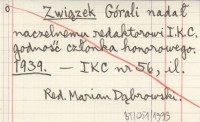 Związek Górali nadał
naczelnemu redaktorowi I.K.C.
godność członka honorowego.
1939. — IKC nr 56, il.
Red. Marian Dąbrowski.